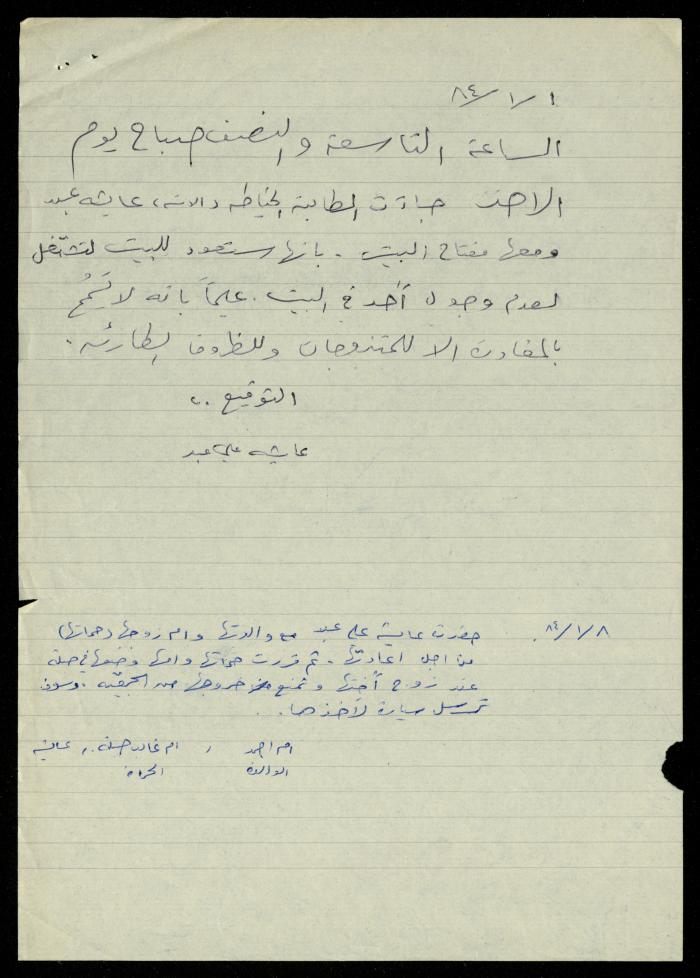 ٨٤/١/١
الساعة التاسعة والنصف صباح يوم
الاحد جاءت الطالبة عايشه عبد
ومعها مفتاح البيت . بانها ستعود للبيت لتشتغل
لعدم وجود أحد في البيت . علماً بانه لا تَسْمح
بالمغادرة الا للمتزوجات وللظروف الطارئه .
التوقيع ..
عايشه علي عبد
٨٤/١/٨ . حضرت عايشة علي عبد مع والدتها وام زوجها (حماتها)
من اجل اعادتها . ثم قررت حماتها وامها وضعها في
عند زوج أختها وتمنع من خروجها من الجمعيه . وسوف
ترسل سيارة لأخذها . .
ام احمد , ام خالد , عايشه
الوالدة الحماة